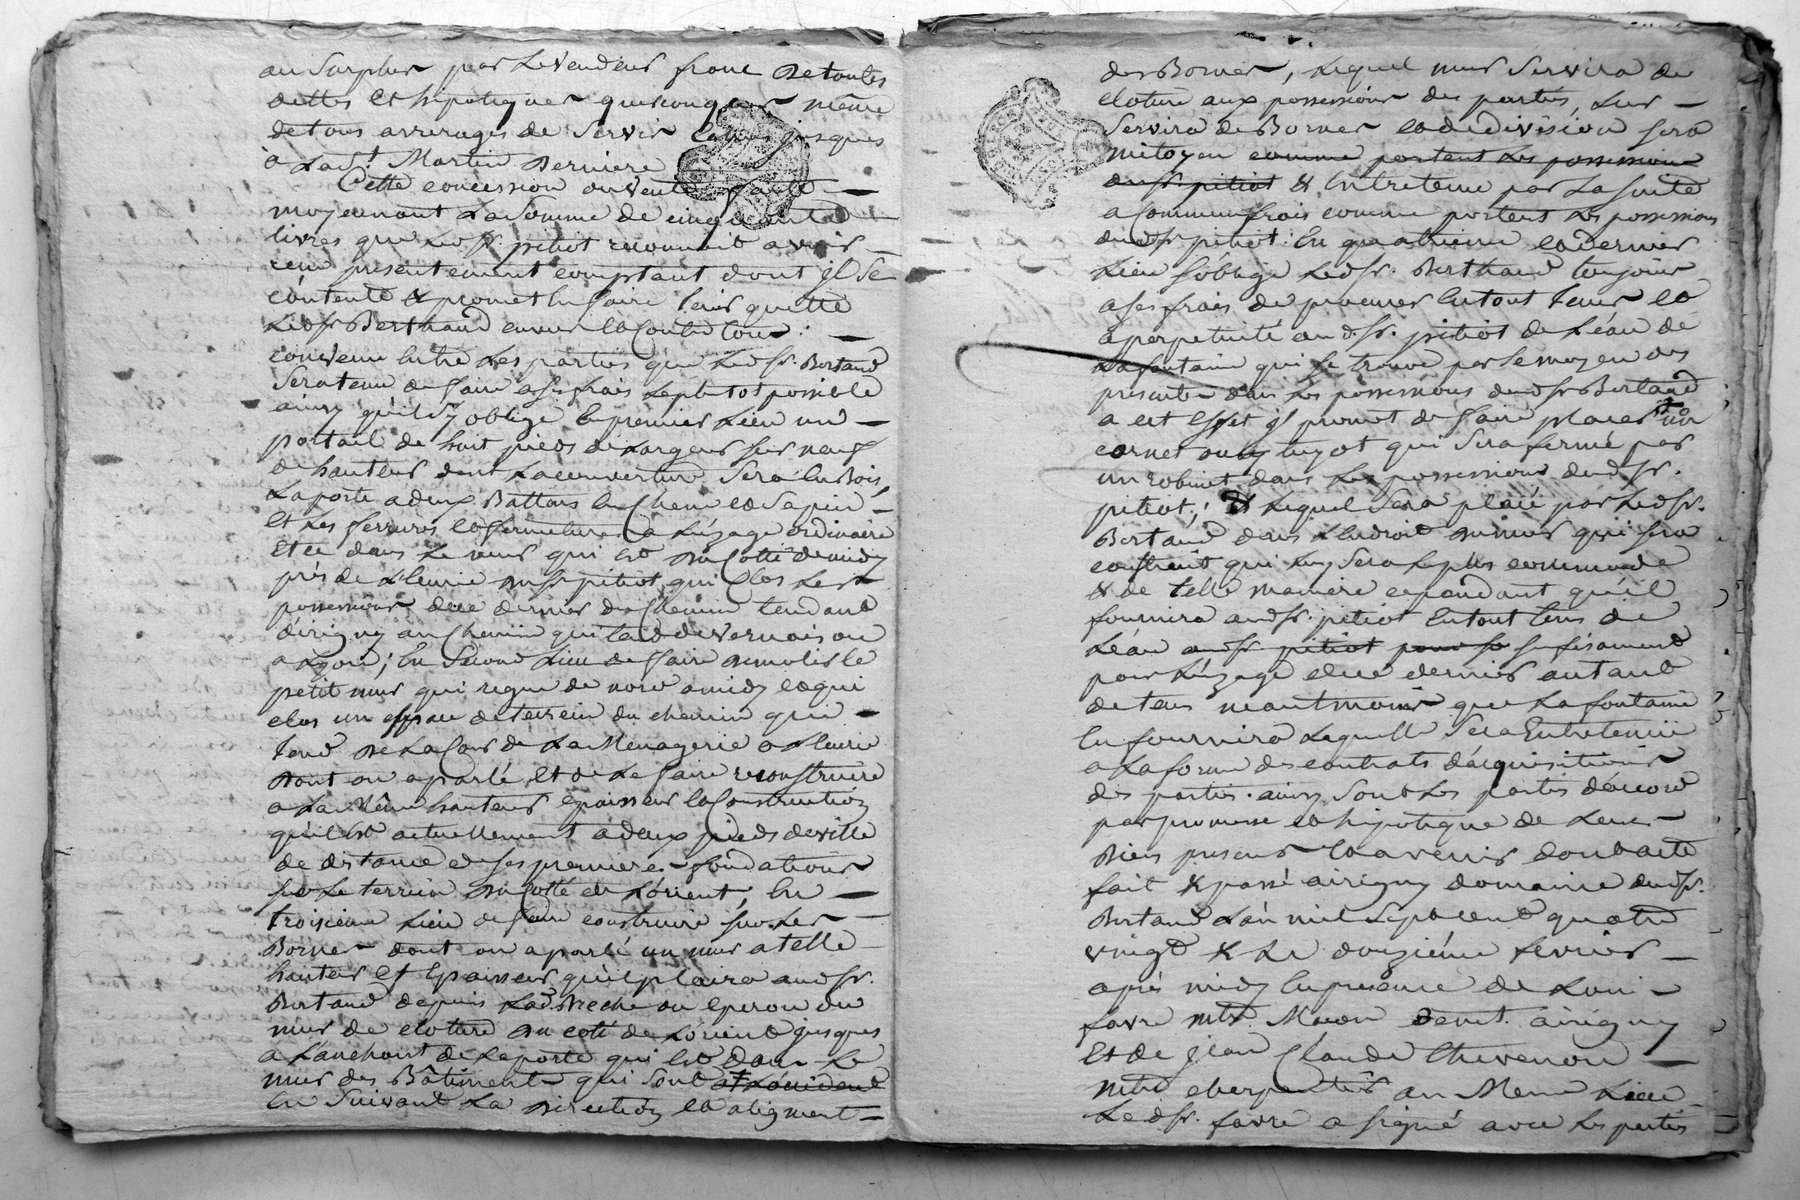 au Surplus par Le Vendeur franc De toutes
dettes Et hipoteques quelconques même
de tous arrerages de Servis jusques
a La St Martin Derniere
Cette concession ou vente faite
moyennant La Somme de cinquante
livres que Led. Sr. pitiot reconnait avoir
reçu presentement comptant dont il Se
contente & promet En faire tenir quitte
Led Sr Berthaud envers Et Contre tous :
convenu Entre Les parties que Led Sr. Bertaud
Sera tenu de faire a Ses frais Le plutot possible
ainsy qu'il s'y oblige En premier Lieu un
portail de huit pieds de Largeur sur neuf
de hauteur dont La couverture Sera En Bois,
La porte a deux Battans En Chene Et Sapin
Et Les ferrures Et fermetures a L'uzage ordinaire
Et ce dans Le mur qui Est Du Cotté de midy
près de L'Ecurie du Sr pitiot qui Clos Les
possessions de ce dernier du Chemin tendant
d'irigny au Chemin qui tend de Vernaison
a Lyon ; En Second Lieu de faire demolir le
petit mur qui regne de nord a midy Et qui
clos un espace de terrein du chemin qui
tend De La Cour de La Menagerie a L'Ecurie
Dont on a parlé, Et de Le faire reconstruire
a La Même hauteur Epaisseur Et Construction
qu'il Est actuellement a deux pieds de ville
de distance de Ses premieres fondations
Sur Le terrein du Cotté de L'orient, En
troisieme Lieu de faire construire Sur Les
Bornes dont on a parlé un mur a telle
hauteur Et Epaisseur qu'il plaira aud Sr.
Bertaud depuis Lad. Breche ou Eperon du
mur de cloture Du coté de L'orient jusques
a L'anchant de La porte qui Est dans Le
mur des Bâtiments qui Sont a L'occident
En Suivant La Direction Et aligment
des Bornes, Lequel mur Servira de
cloture aux possessions des parties, Leur
Servira de Bornes Et de division Sera
mitoyen comme portent Les possessions
dud Sr. pitiot & Entretenu par La Suite
a Communs frais comme portent Les possessions
dud Sr pitiot : En quatrieme Et dernier
Lieu s'oblige Led Sr. Berthaud toujours
a Ses frais de procurer En tout tems Et
a perpetuité aud. Sr. pitiot de L'éau de
La fontaine qui Se trouve par Le moyen des
presentes dans Les possessions dud Sr Bertaud
a cet Effet il promet de faire placer un
cornet ou tuyot qui Sera fermé par
un robinet dans Les possessions dud Sr.
pitiot, Lequel Sera placé par Led Sr.
Bertaud dans L'Endroit du mur qui Sera
construit qui Luy Sera Le plus commode
& de telle maniere cependant qu'il
fournira aud Sr. pitiot En tout tems de
L'éau aud Sr pitiot pour Sufisament
pour L'uzage de ce dernier autant
de tems neantmoins que La fontaine
En fournira Laquelle Sera Entretenüe
a La forme des contrats d'acquisitions
des parties. ainsy Sont Les parties d'accord
par promesse Et hipoteque de Leurs
Biens presens Et avenir dont acte
fait & passé a irigny Domaine dud Sr.
Bertaud L'an mil Sept cent quatre
vingt & Le douziéme fevrier
après midy En presence de Loui
favre mtre Macon demt. a irigny
Et de Jean Claude Thevenon
mtre charpentier au Meme Lieu
Led Sr. favre a Signé avec Les parties